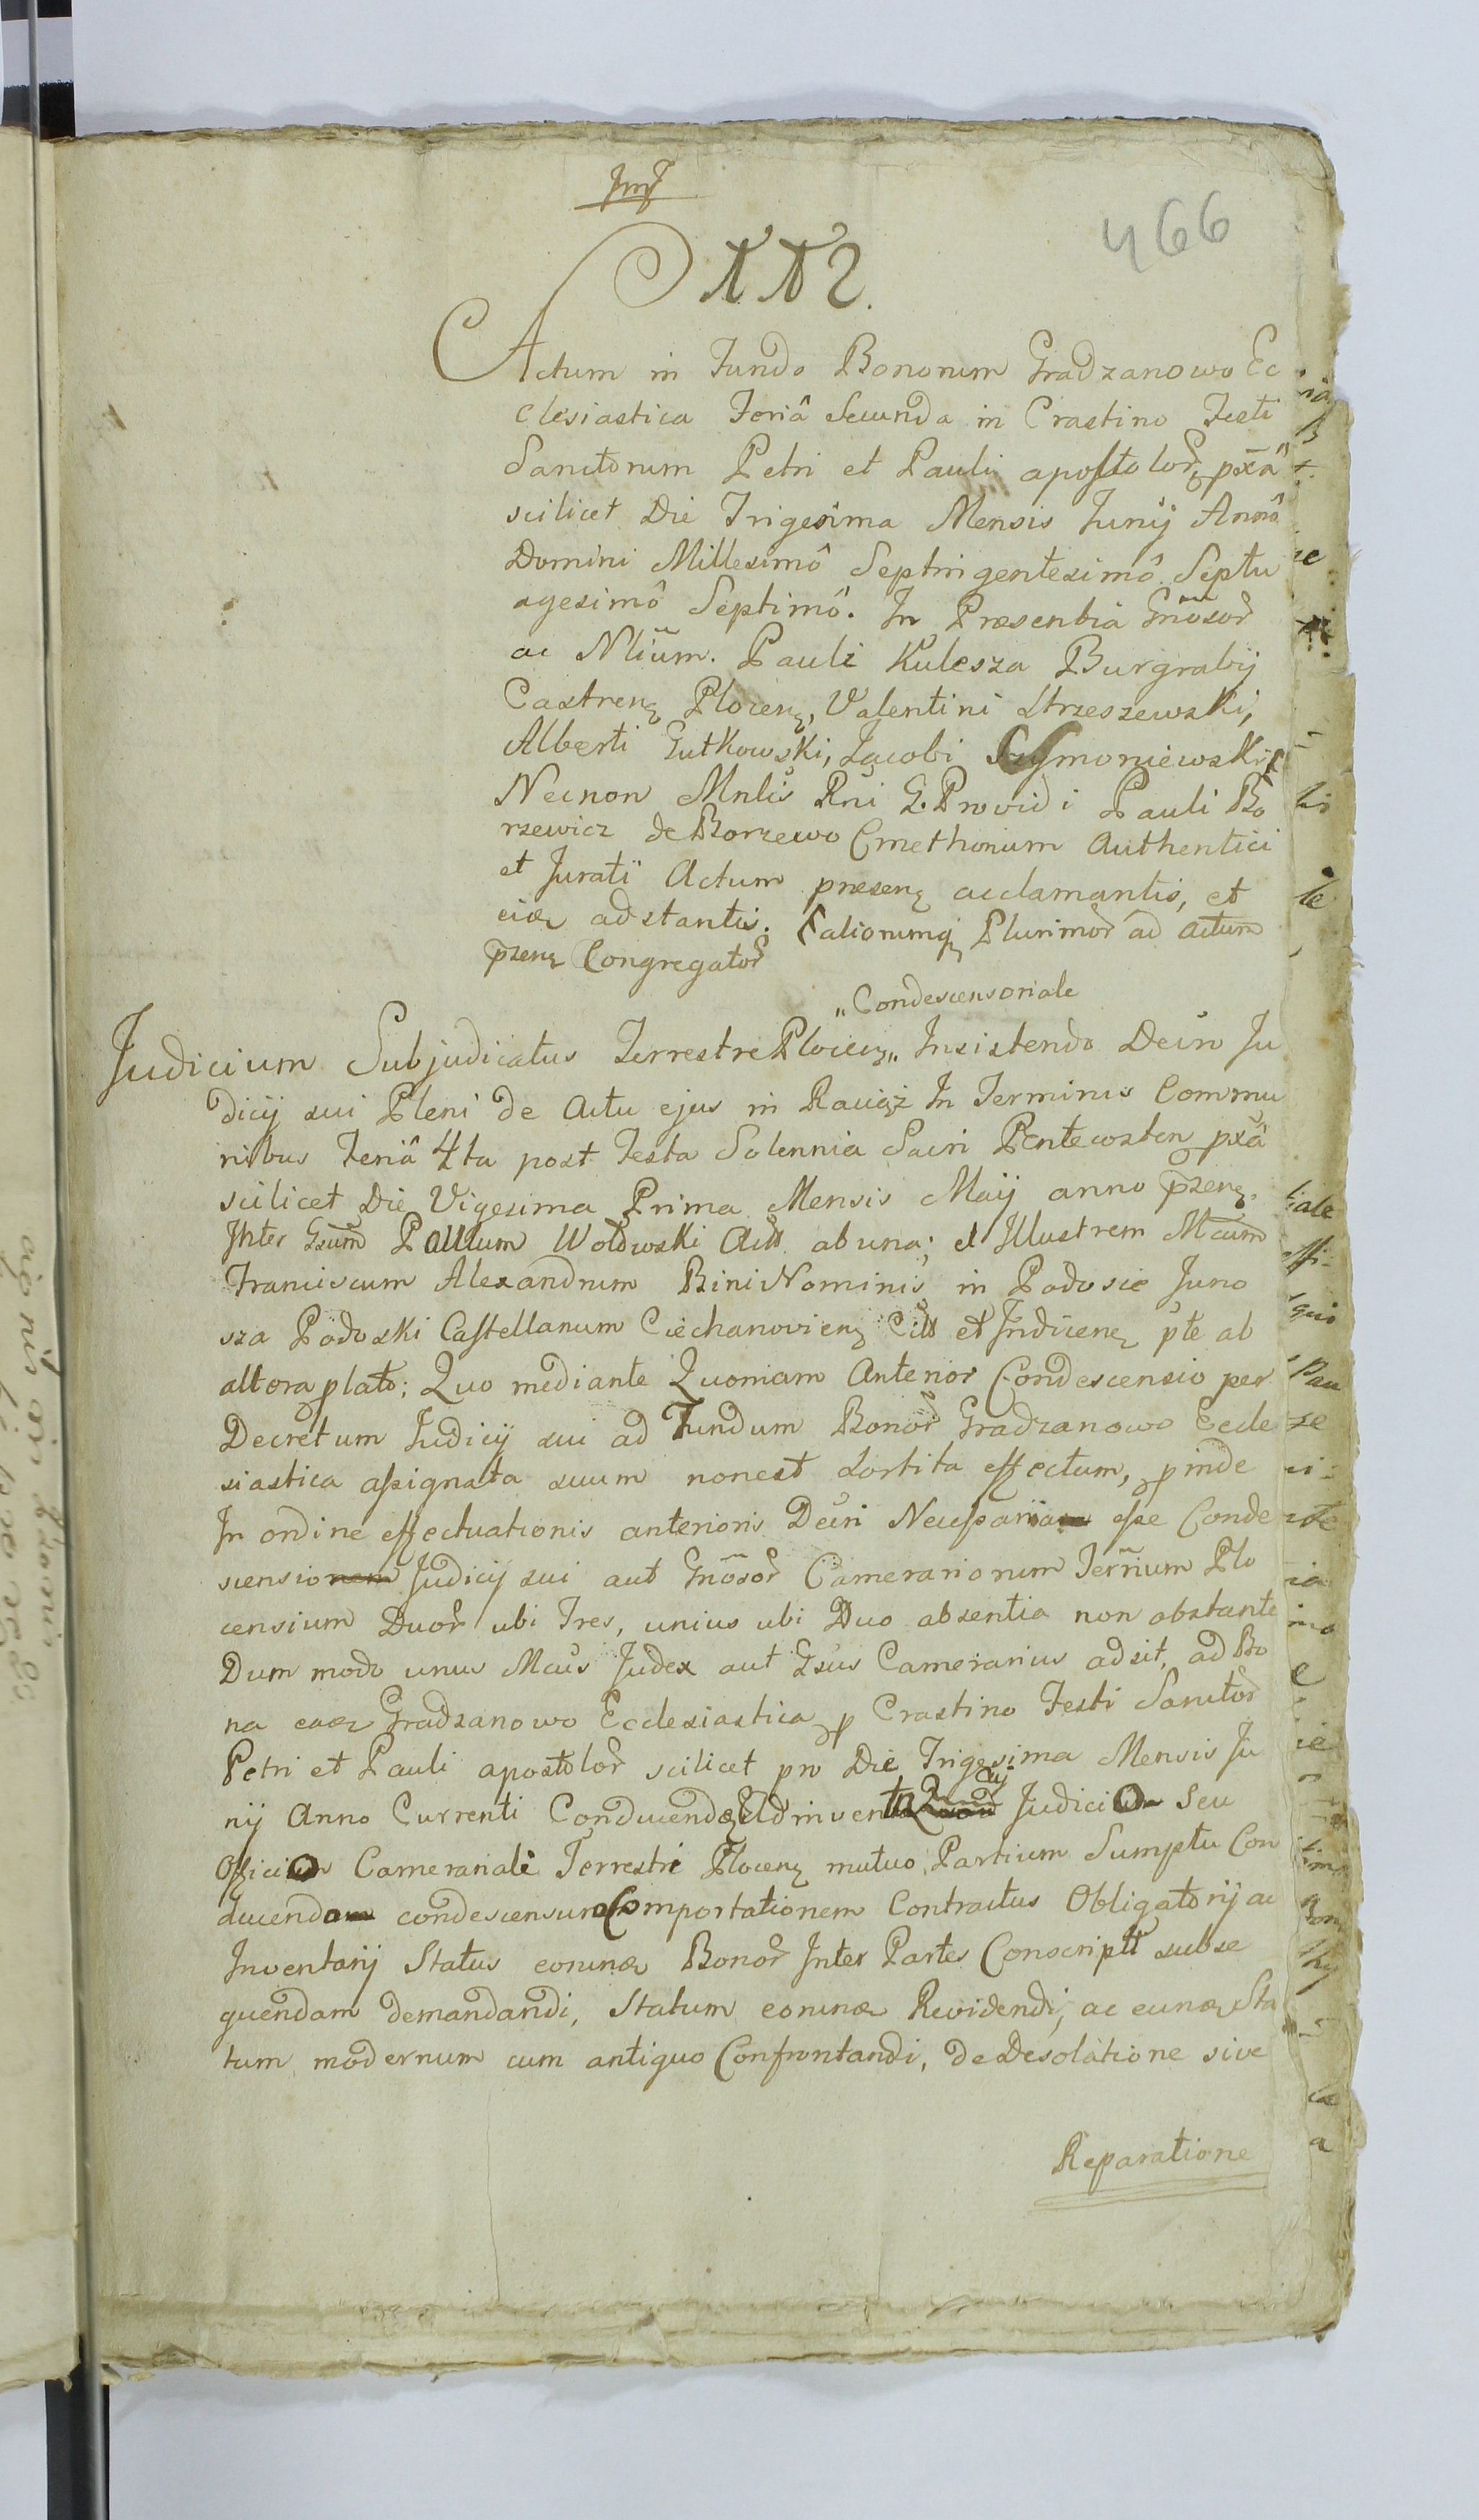 466
Actum in Fundo Bonorum Gradzanowo Ec
clesiastica Feriâ Secunda in Crastino Festi
Sanctorum Petri et Pauli apostolor pxâ
scilicet Die Trigesima Mensis Junij Annô
Domini Millesimô Septingentesimô Septu
agesimô Septimô. In Præsentia Gnosor
ac Nlium. Pauli Kulesza Burgrabij
Castren Plocen, Valentini Strzeszewski,
Alberti Gutkowski, Jacobi Szymoniewski
Necnon Mnlis Rni G. Providi Pauli Bo
rzewicz de Borzewo Cmethonum Authentici
et Jurati Actum præsen acclamantis, et
eicæ adstantis. aliorumq Plurimor ad actum
pzen Congregator
„Condescensoriale
Judicium Subjudicatus Terrestre Plocen„ Insistendo Decro Ju
dicij sui Pleni de Actu ejus in Raciąż In Terminis Commu
nibus Feriâ 4ta post Festa Solennia Sacri Pentecosten pxâ
scilicet Die Vigesima Prima Mensis Maij anno pzen.
Inter Gsum Paulum Wołowski Act ab una; et Illustrem Mcum
Franciscum Alexandrum Bini Nominis in Podosie Juno
sza Podoski Castellanum Ciechanovien Citt et Inducen pte ab
altera plato; Quo mediante Quoniam Anterior Condescensio per
Decretum Judicij sui ad Fundum Bonor Gradzanowo Eccle
siastica assignata suum non est sortita effectum, pinde
In ordine effectuationis anterioris Decri Necessaria esse Conde
scensionem Judicij sui aut Gnosor Camerariorum Terrium Plo
censium Duor ubi Tres, unius ubi Duo absentia non obstante
Dum modo unus Mcus Judex aut Gsus Camerarius adsit, ad Bo
na eaæ Gradzanowo Ecclesiastica p Crastino Festi Sanctor
Petri et Pauli apostolor scilicet pro Die Trigesima Mensis Ju
nij Anno Currenti Conducend Adinventa Judicio Seu
Officio Camerariali Terrestri Plocen mutuo Partium Sumptu Con
ducendo condescensuro Comportationem Contractus Obligatorij ac
Inventarij Status eorunæ Bonor Inter Partes Conscript subse
quendam demandandi, Statum eorunæ Revidendi, ac eunæ Sta
tum modernum cum antiquo Confrontandi, de Desolatione sive
Reparatione